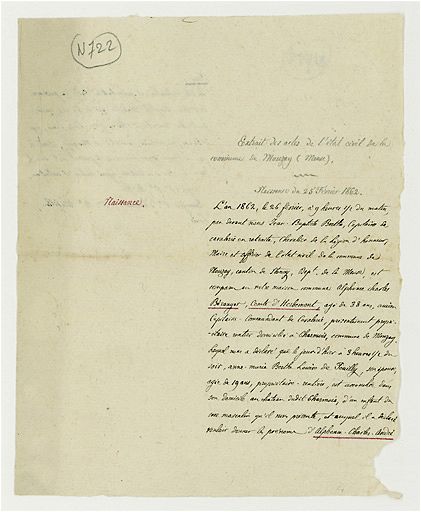 N 722
Extrait des actes de l'état civil de la
commune de Mouzay (Meuse).
Naissance du 25 Février 1862.
Naissance.
L'an 1862, le 26 février, à 9 heures 1/2 du matin,
par devant nous Jean-Baptiste Berthe, Capitaine de
cavalerie en retraite, Chevalier de la Légion d'Honneur,
Maire et officier de l'état civil de la commune de
Mouzay, canton de Stenay, Dépt. de la Meuse, est
comparu en notre maison commune Alphonse Charles
Béranger, Comte d'Herbemont, âgé de 38 ans, ancien
Capitaine Commandant de Cavalerie, présentement propri-
-étaire rentier domicilié à Charmois, commune de Mouzay,
lequel nous a déclaré que le jour d'hier à 3 heures 1/2 du
soir, anne-marie Berthe Louise de Pouilly, son épouse,
âgée de 29 ans, propriétaire-rentière, est accouchée dans
son domicile au château dudit Charmois, d'un enfant du
sexe masculin qu'il nous présente, et auquel il a déclaré
vouloir donner le prénoms d'Alphonse-Charles-André